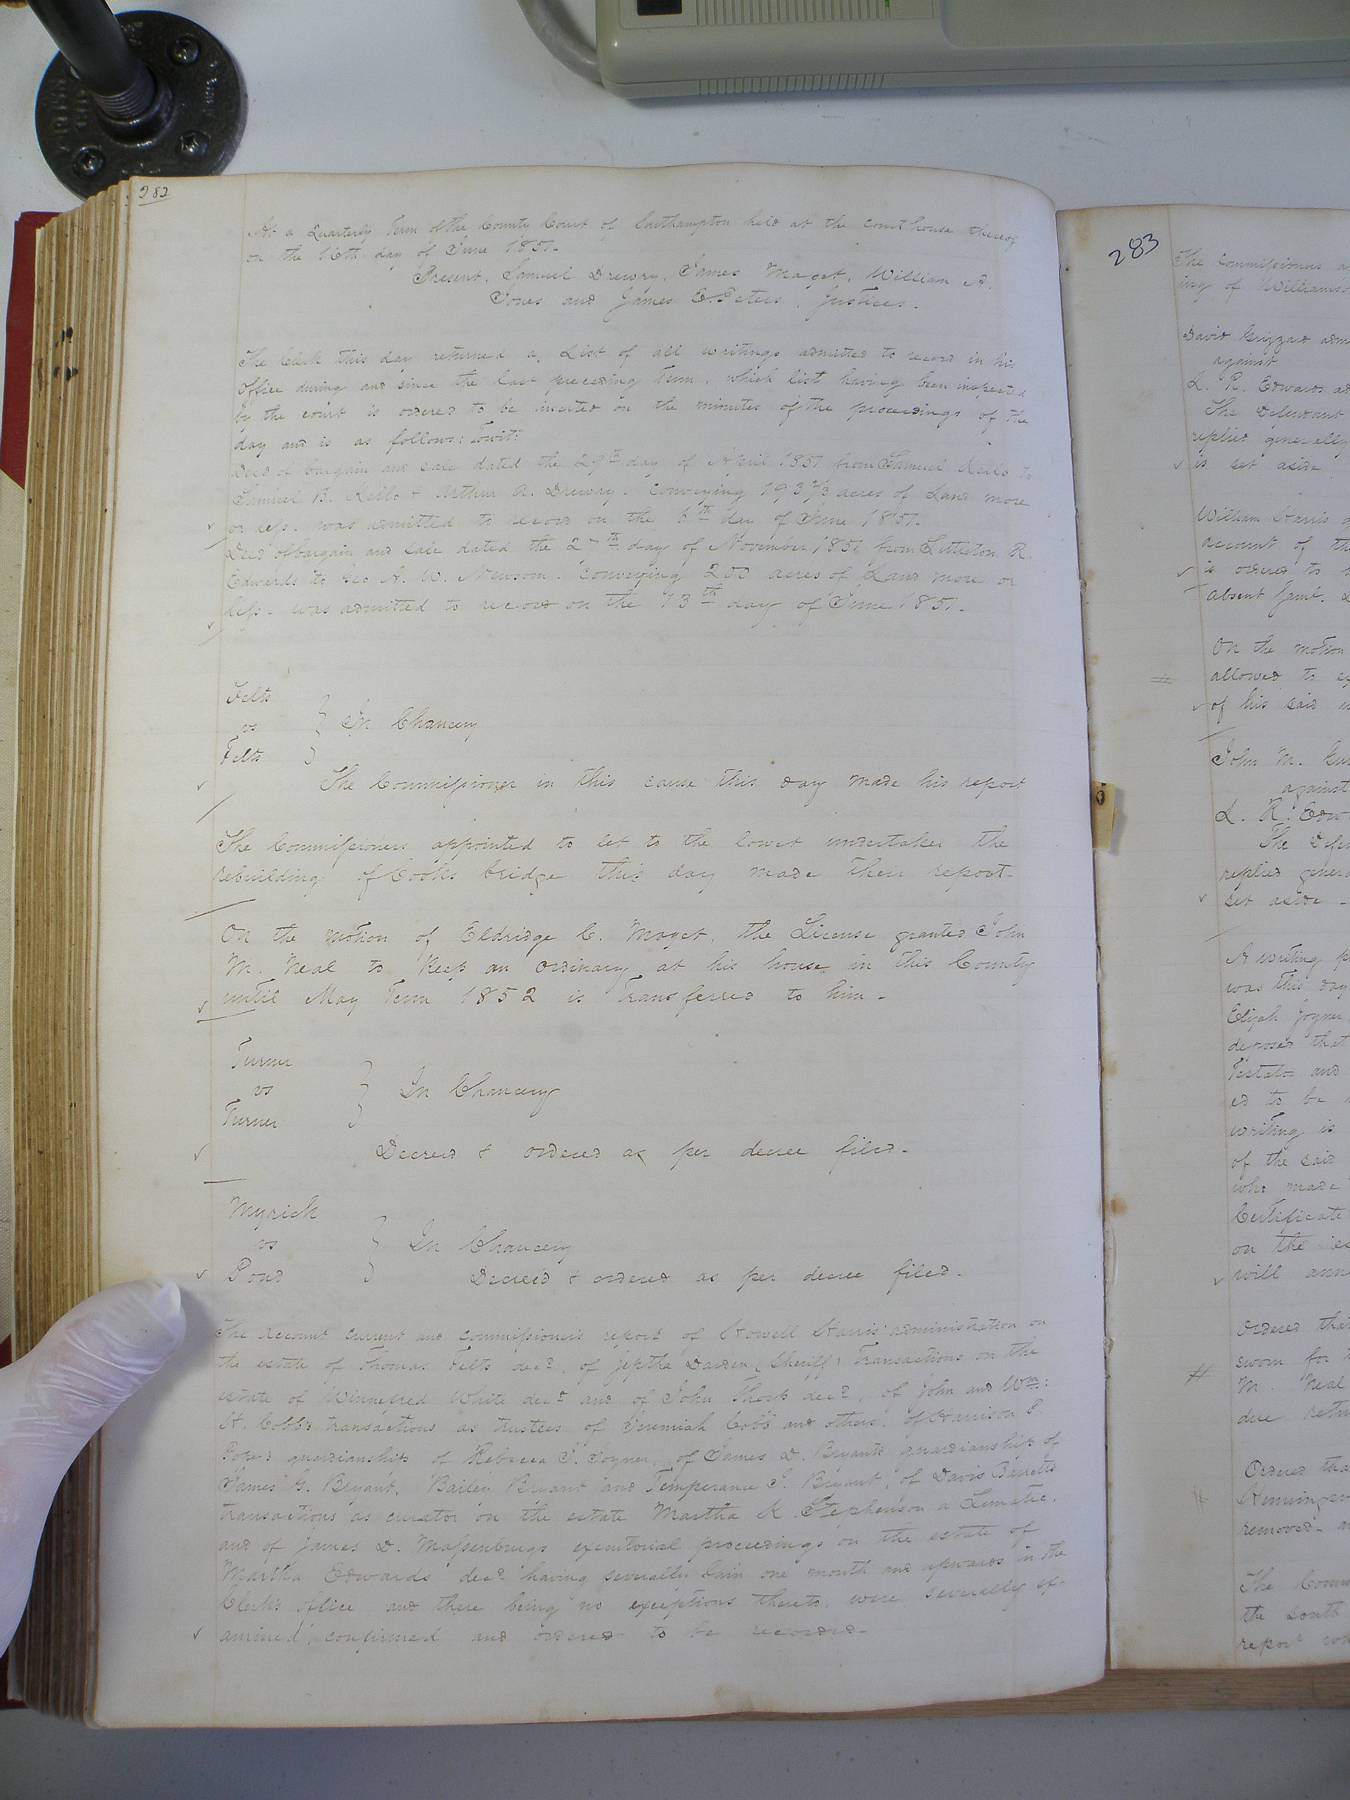 282
At a Quarterly Term of the County Court of Southampton held at the court house thereof
on the 16th day of June 1851.
Present, Samuel Drewry, James Maget, William A.
Jones and James E Peters, Justices.
The Clerk this day returned a List of all writings admitted to record in his
Office during and since the last preceding Term, which list having been inspected
by the court is ordered to be inserted on the minutes of the proceedings of the
day and is as follows: Towit:
Deed of bargain and sale dated the 29th day of April 1851 from Samuel Kello to
Samuel B. Kello & Arthur A. Drewry, conveying 193 2/3 acres of Land more
or less, was admitted to record on the 6th day of June 1851.
Deed of bargain and sale dated the day of November 1850 from Littleton R.
Edwards to Geo A. W. Newsom, conveying 200 acres of Land more or
less, was admitted to record on the 13th day of June 1851.
Felts
vs } In Chancery
Felts
The Commissioner in this cause this day made his report
The Commissioners appointed to let to the lowest undertaker the
rebuilding of Cooks bridge this day made their report.
On the motion of Eldridge C. Maget, the License granted John
M. Neal to keep an ordinary at his house in this County
until May Term 1852 is Transferred to him.
Turner
vs } In Chancery
Turner
Decreed & ordered as per decree filed.
Myrick
vs } In Chancery
Pond Decreed & ordered as per decree filed.
The Account current and commissioners report of Howell Harris' administration on
the estate of Thomas Felts decd, of Jeptha Darden (Sheriff) Transactions on the
estate of Winnefred White decd and of John Thorp decd, of John and Wm:
A. Cobb's transactions as trustees of Jeremiah Cobb and others, of Harrison P.
Popes guardianship of Rebecca J. Joyner, of James D. Bryants guardianship of
James G. Bryant, Bailey Bryant and Temperance J. Bryant, of Davis Barretts
transactions as curator on the estate Martha K Stephenson a Lunatic,
and of James D. Massenburgs executorial proceedings on the estate of
Martha Edwards decd having severally lain one month and upwards in the
Clerk's office and there being no exceptions thereto, were severally ex-
amined, confirmed and ordered to be recorded.
283
The Commissioners
ing of Williams
David Grizzard adm
against
L. R. Edwards
The Defendant
replied generally
is set aside
William Harris
account of th
is ordered to
Absent Jams.
On the motion
allowed to
of his said
John M. Gur
against
L. R. Edw
The Defe
replied gener
set aside -
A writing p
was this day
Elijah Joyner
deposed that
Testator and
ed to be
writing is
of the said
who made
Certificate
on the es
will ann
Ordered that
sworn for
M. Neal
due retu
Ordered tha
removed
The Comm
the south
report